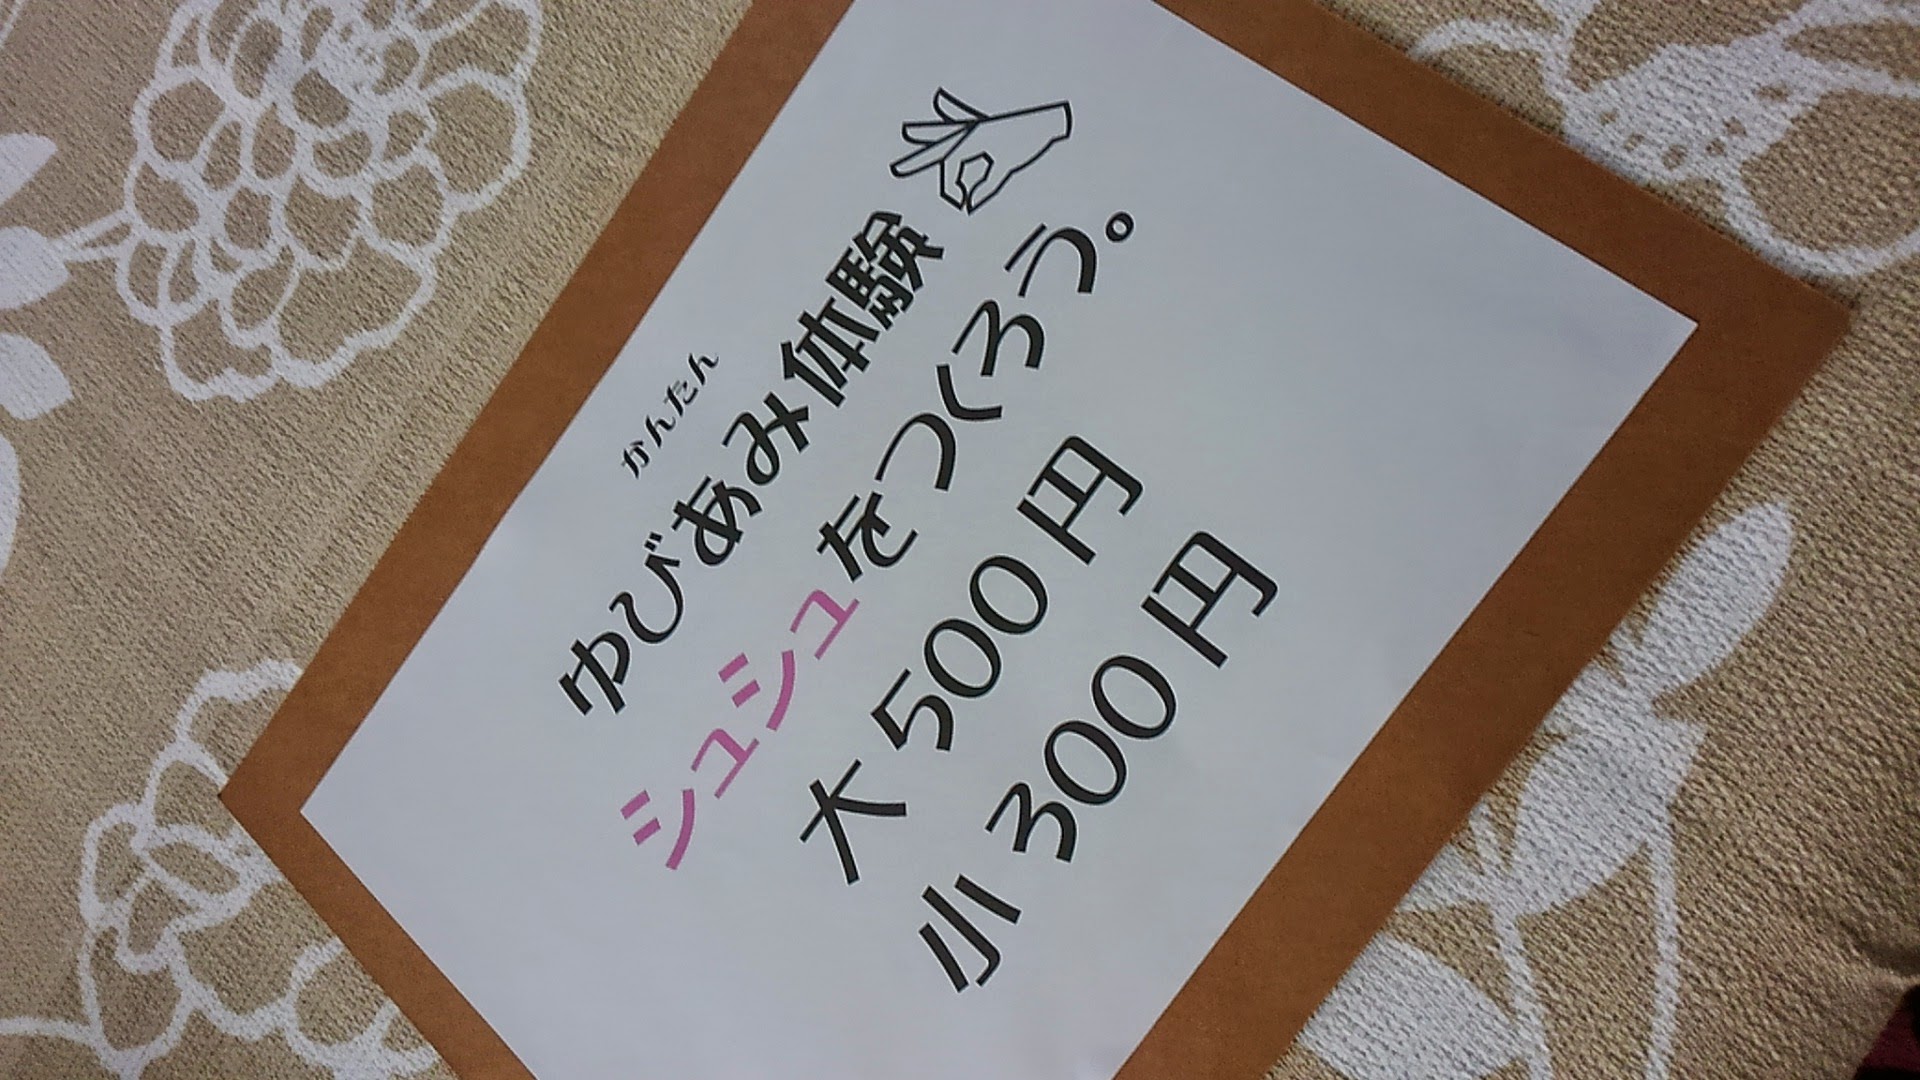 かんたん
ゆびあみ体験
シュシュをつくろう。
大500円
小300円